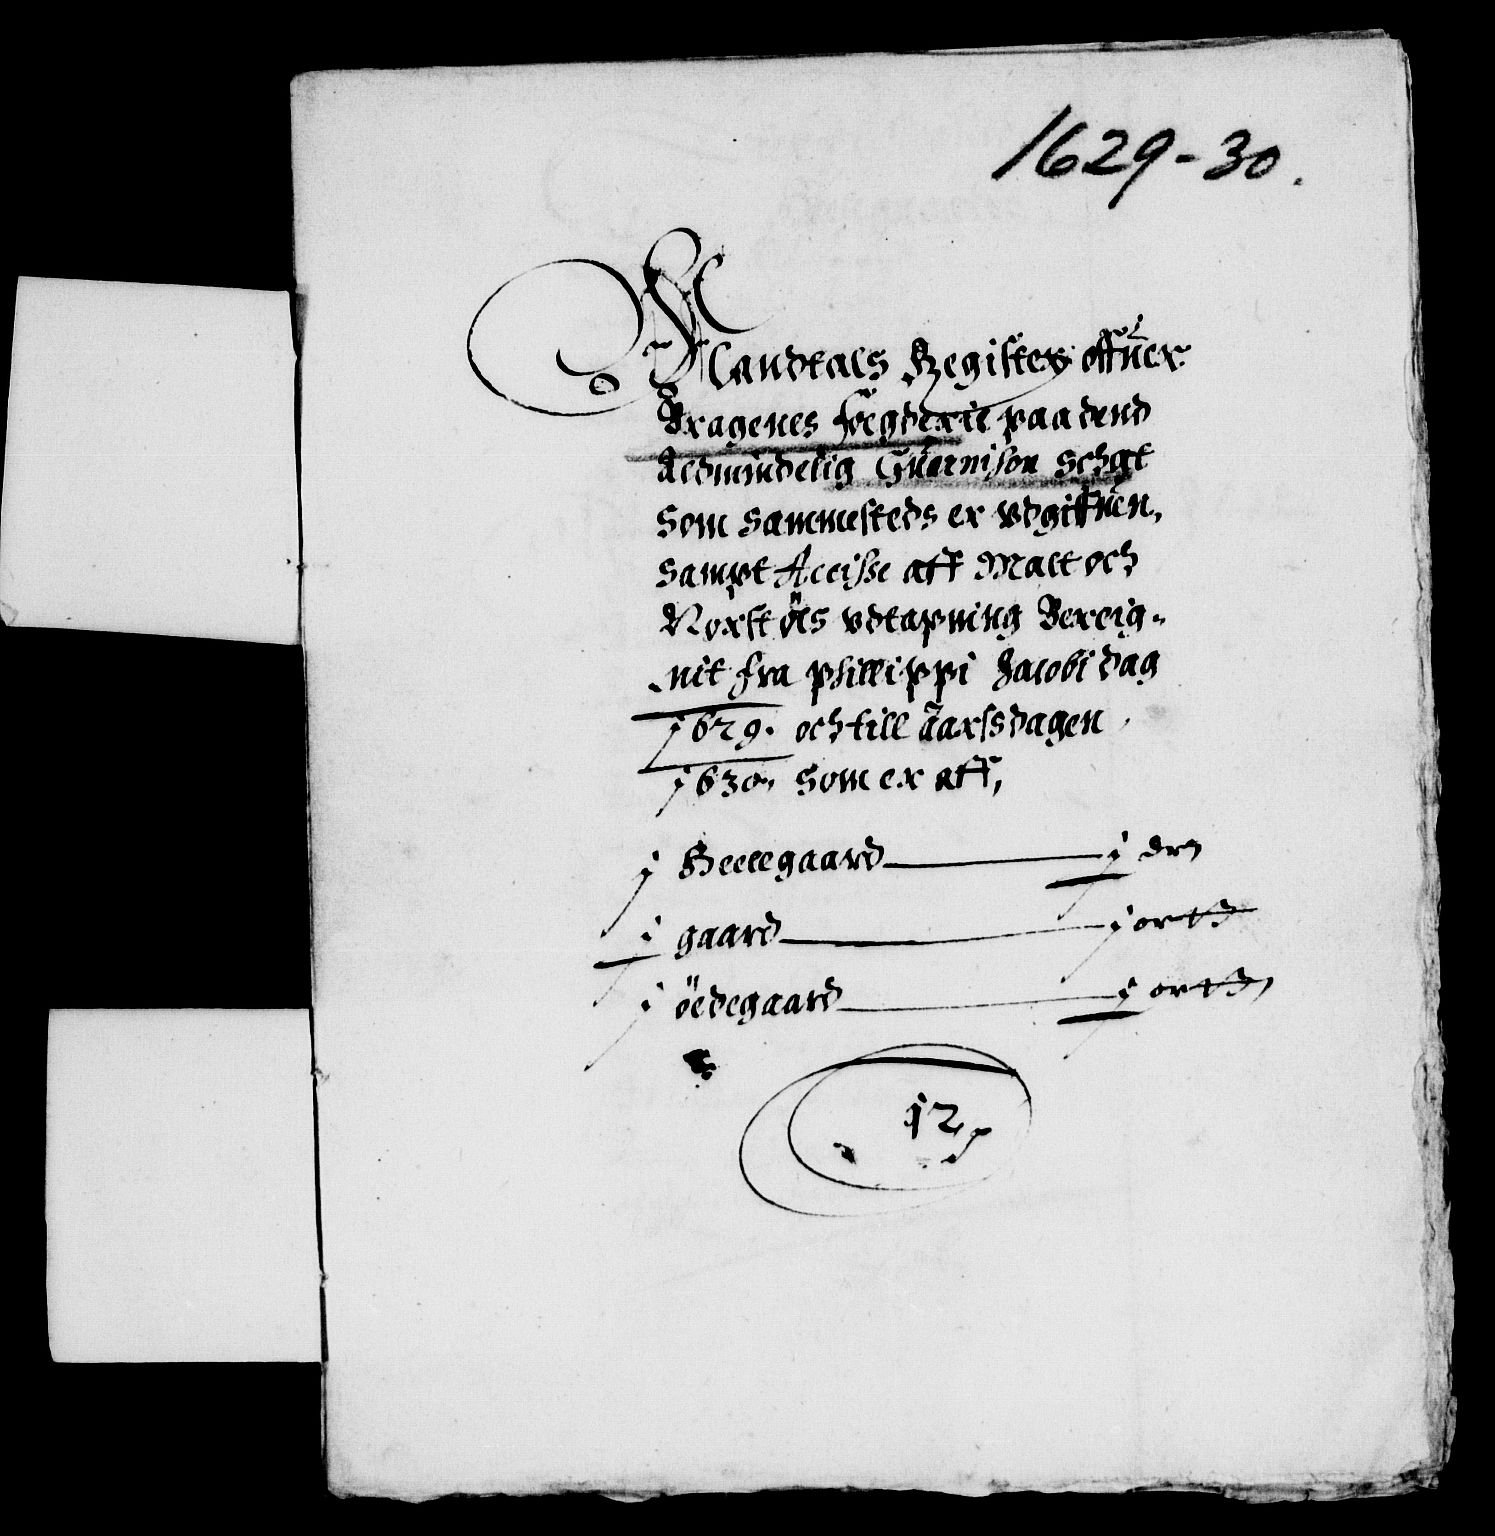 1629-30.
Mandtals Register offuer
Bragenes fōegderie paa dend
Aldmindelig Guarnison schat
som sammesteds er vdgiffuen,
sampt Accisse aff Malt och
Norst öls vdtapning Bereig-
nit fra phillippi Jacobi dag
1629. och till aarssdagen
1630. som er aff,
j Heelegaard j
j gaard j ort
j öedegaard j ort
12